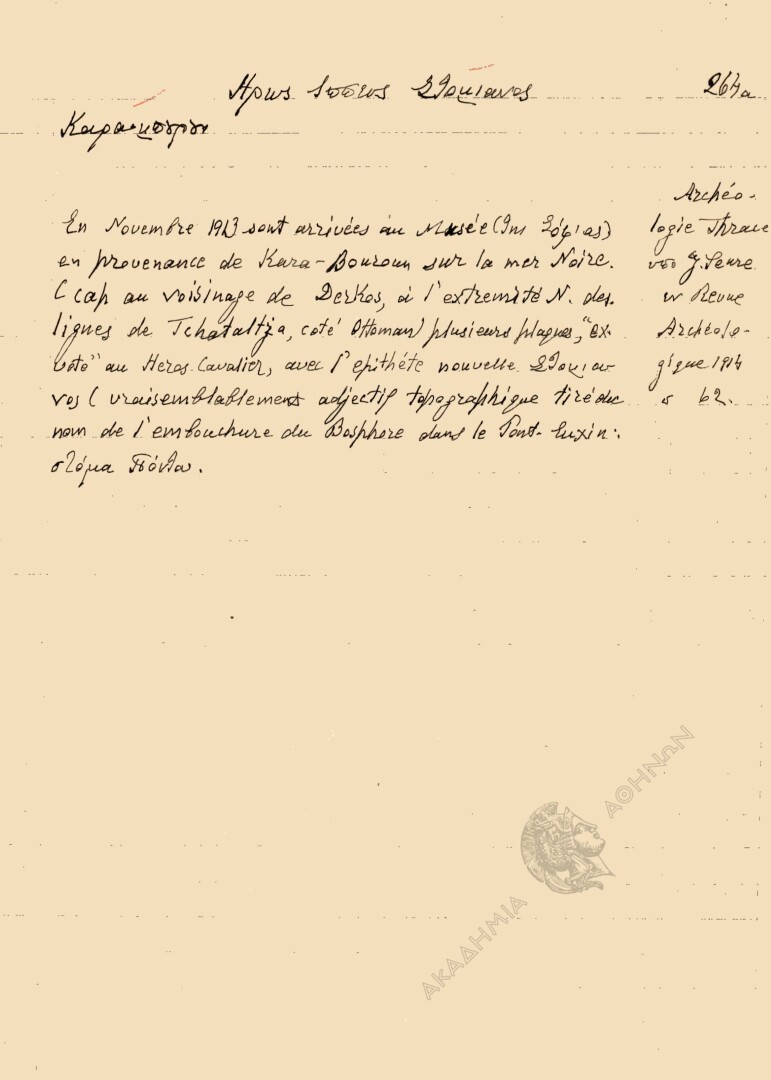 Ηρως Ιππευς Στομιανος
264α
Καραμπουρου
En Novembre 1913 sont arrivées au Musée (της Σόφιας)
en provenance de Kara-Bouroun sur la mer Noire.
( cap au voisinage de Derkos, à l'extremité N. des
lignes de Tchataltja, coté Ottoman) plusieurs plaques, "ex-
voto" au Heros-Cavalier, avec l'epithéte nouvelle Στομια-
νος ( vraisemblablement adjectif topographique tiré du
nom de l'embouchure du Bosphore dans le Pont-Euxin:
στόμα Πόντου.
Archéo-
logie Thrace
υπο G. Seure
εν Revue
Archéolo-
gique 1914
σ 62.
ΑΚΑΔΗΜΙΑ ΑΘΗΝΩΝ